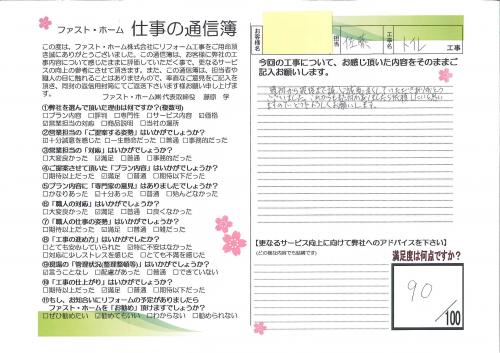 ファスト・ホーム 仕事の通信簿
この度は、ファスト・ホーム株式会社にリフォーム工事をご用命頂き誠にありがとうございました。この通信簿は、お客様に弊社の工事内容について感じたままに評価していただく事で、更なるサービスの向上の参考にさせて頂きます。また、この通信簿は、担当者や職人の目に触れることはありませんので、率直なご意見をご記入を頂き、同封の返信用封筒にてご返送下さいます様お願い申し上げます。
ファスト・ホーム㈱代表取締役 藤原 学
①弊社を選んで頂いた理由は何ですか?(複数可)
□プラン内容 □評判 □専門性 □サービス内容 ☑価格
□営業担当の対応 □商品説明 □当社の場所
②営業担当の「ご提案する姿勢」はいかがでしょうか?
☑十分誠意を感じた □一生懸命だった □普通 □事務的だった
③営業担当の「対応」はいかがでしょうか?
□大変良かった ☑満足 □普通 □事務的だった
④ご提案させて頂いた「プラン内容」はいかがでしょうか?
□期待以上だった ☑満足 □普通 □期待以下だった
⑤プラン内容に「専門家の意見」はありましたでしょうか?
□かなりあった □十分あった □普通 □殆んどなかった
⑥「職人の対応」はいかがでしょうか?
□大変良かった ☑満足 □普通 □良くなかった
⑦「職人の仕事の姿勢」はいかがでしょうか?
□期待以上だった ☑満足 □普通 □雑だった
⑧「工事の進め方」はいかがでしたか?
□とても安心していられた ☑特に不安はなかった
□対応に少しストレスを感じた □とても不満を感じた
⑨現場の「管理状況(整理整頓等)」はいかがでしょうか?
☑言うことなし □配慮があった □普通 □できていない
⑩「工事の仕上がり」はいかがでしょうか?
□期待以上だった ☑満足 □普通 □期待以下だった
⑪もし、お知合いにリフォームの予定がありましたら
ファスト・ホームを「お勧め」頂けますでしょうか?
□ぜひ勧めたい ☑勧めてもいい □わからない □勧められない
お客様名
担当
佐藤
工事名
トイレ
工事
今回の工事について、お感じ頂いた内容をそのままご記入お願いします。
【更なるサービス向上に向けて弊社へのアドバイスを下さい】
(どの様な内容でも結構です)
満足度は何点ですか?
90
/100